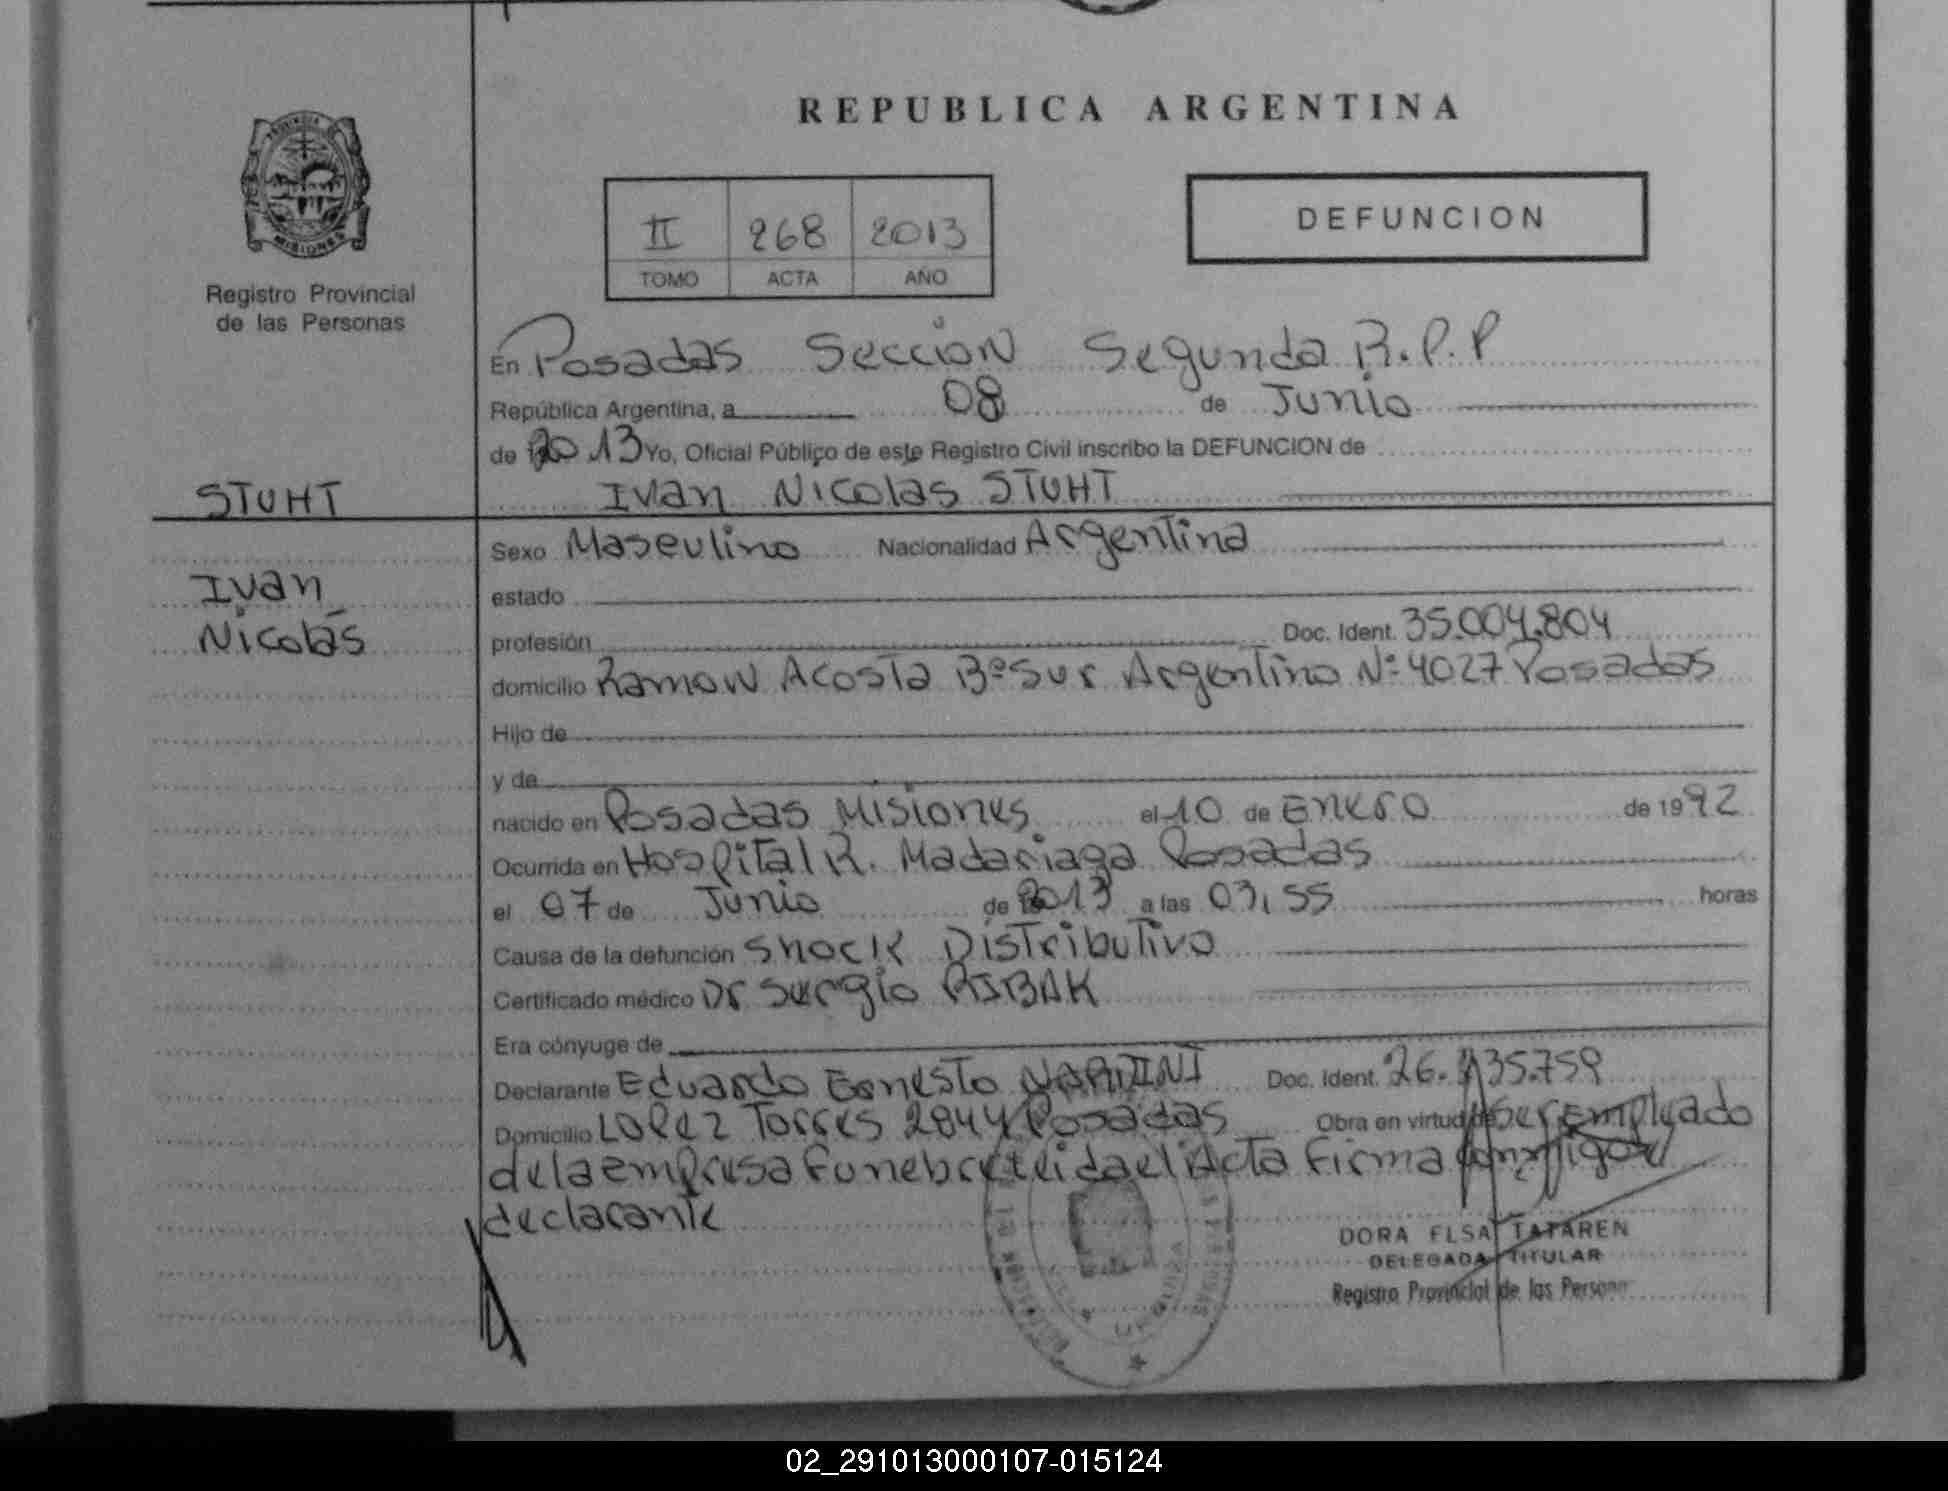 REPUBLICA ARGENTINA
PROVINCIA DE
MISIONES
Registro Provincial
de las Personas
II 268 2013
TOMO ACTA AÑO
DEFUNCION
En Posadas Sección Segunda R.P.P
República Argentina, a 08 de Junio
de 2013 Yo, Oficial Público de este Registro Civil inscribo la DEFUNCION de
STUHT
Ivan Nicolas STUHT
Sexo Masculino Nacionalidad Argentina
Ivan
Nicolás
estado
profesión Doc. Ident. 35.004.804
domicilio Ramon Acosta Bº Sur Argentino Nº 4027 Posadas
Hijo de
y de
nacido en Posadas Misiones el 10 de Enero de 1992
Ocurrida en Hospital R. Madariaga Posadas
el 07 de Junio de 2013 a las 03,55 horas
Causa de la defunción Shock Distributivo
Certificado médico Dr Sergio RIBAK
Era cónyuge de
Declarante Eduardo Ernesto Doc. Ident. 26.
Domicilio Lopez Torres 2844 Posadas Obra en virtud de ser empleado
de la empresa funebre leida el Acta firma
declarante
DORA ELSA TATAREN
DELEGADA TITULAR
Registro Provincial de las Persona
02_291013000107-015124